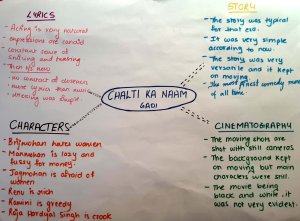 LYRICS
- Acting is very natural
- expressions are candid
- constant scare of
smiling and teasing
- Then vs now
- no contrast of absences
- more lyrics than music
- meaning was simple.
STORY
- The story was typical
for that era.
- It was very simple
according to now.
- The story was very
versatile and it kept
on moving.
- The most finest comedy movie
of all time
CHALTI KA NAAM
GADI
CHARACTERS
- Brijmohan hates women
- Manmohan is lazy and
fussy for money
- Jagmohan is afraid of
women
- Renu is rich
- Kamini is greedy
- Raja Hardayal Singh is crook
CINEMATOGRAPHY
- The moving shots are
shot with still cameras
- The background kept
on moving but main
characters were still.
- The movie being
black and white. it
was not very evident.